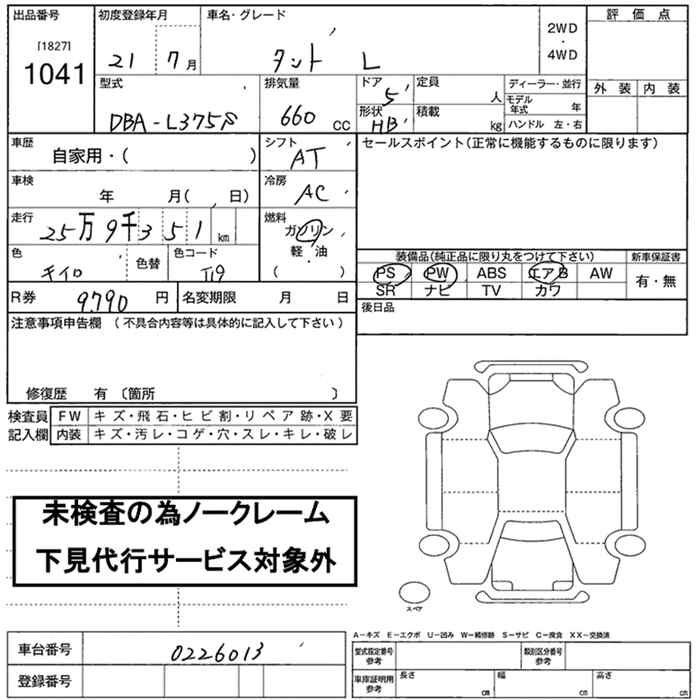 出品番号 初度登録年月 車名・グレード 2WD ・ 4WD 評価点
[1827] 1041 21 7月 タント L
外装 内装
型式 排気量 ドア 5 定員 人 ディーラー・並行
DBA-L375S 660 CC 形状 HB 積載 kg モデル年式 年
ハンドル 左・右
車歴 自家用・( ) シフト AT セールスポイント(正常に機能するものに限ります)
車検 年 月( 日) 冷房 AC
走行 25万9千351 km 燃料 ガソリン 軽・油 ( )
色 キイロ 色替 色コード T19
装備品(純正品に限り丸をつけて下さい) 新車保証書
PS PW ABS エアB AW 有・無
SR ナビ TV カワ
R券 9790 円 名変期限 月 日 後日品
注意事項申告欄 (不具合内容等は具体的に記入して下さい)
修復歴 有 〔箇所 〕
検査員 FW キズ・飛石・ヒビ割・リペア跡・X要
記入欄 内装 キズ・汚レ・コゲ・穴・スレ・キレ・破レ
未検査の為ノークレーム
下見代行サービス対象外
スペア
A-キズ E-エクボ U-凹み W-補修跡 S-サビ C-腐食 XX-交換済
車台番号 0226013 型式指定番号 参考 類別区分番号 参考
登録番号 車庫証明用 参考 長さ cm 幅 cm 高さ cm